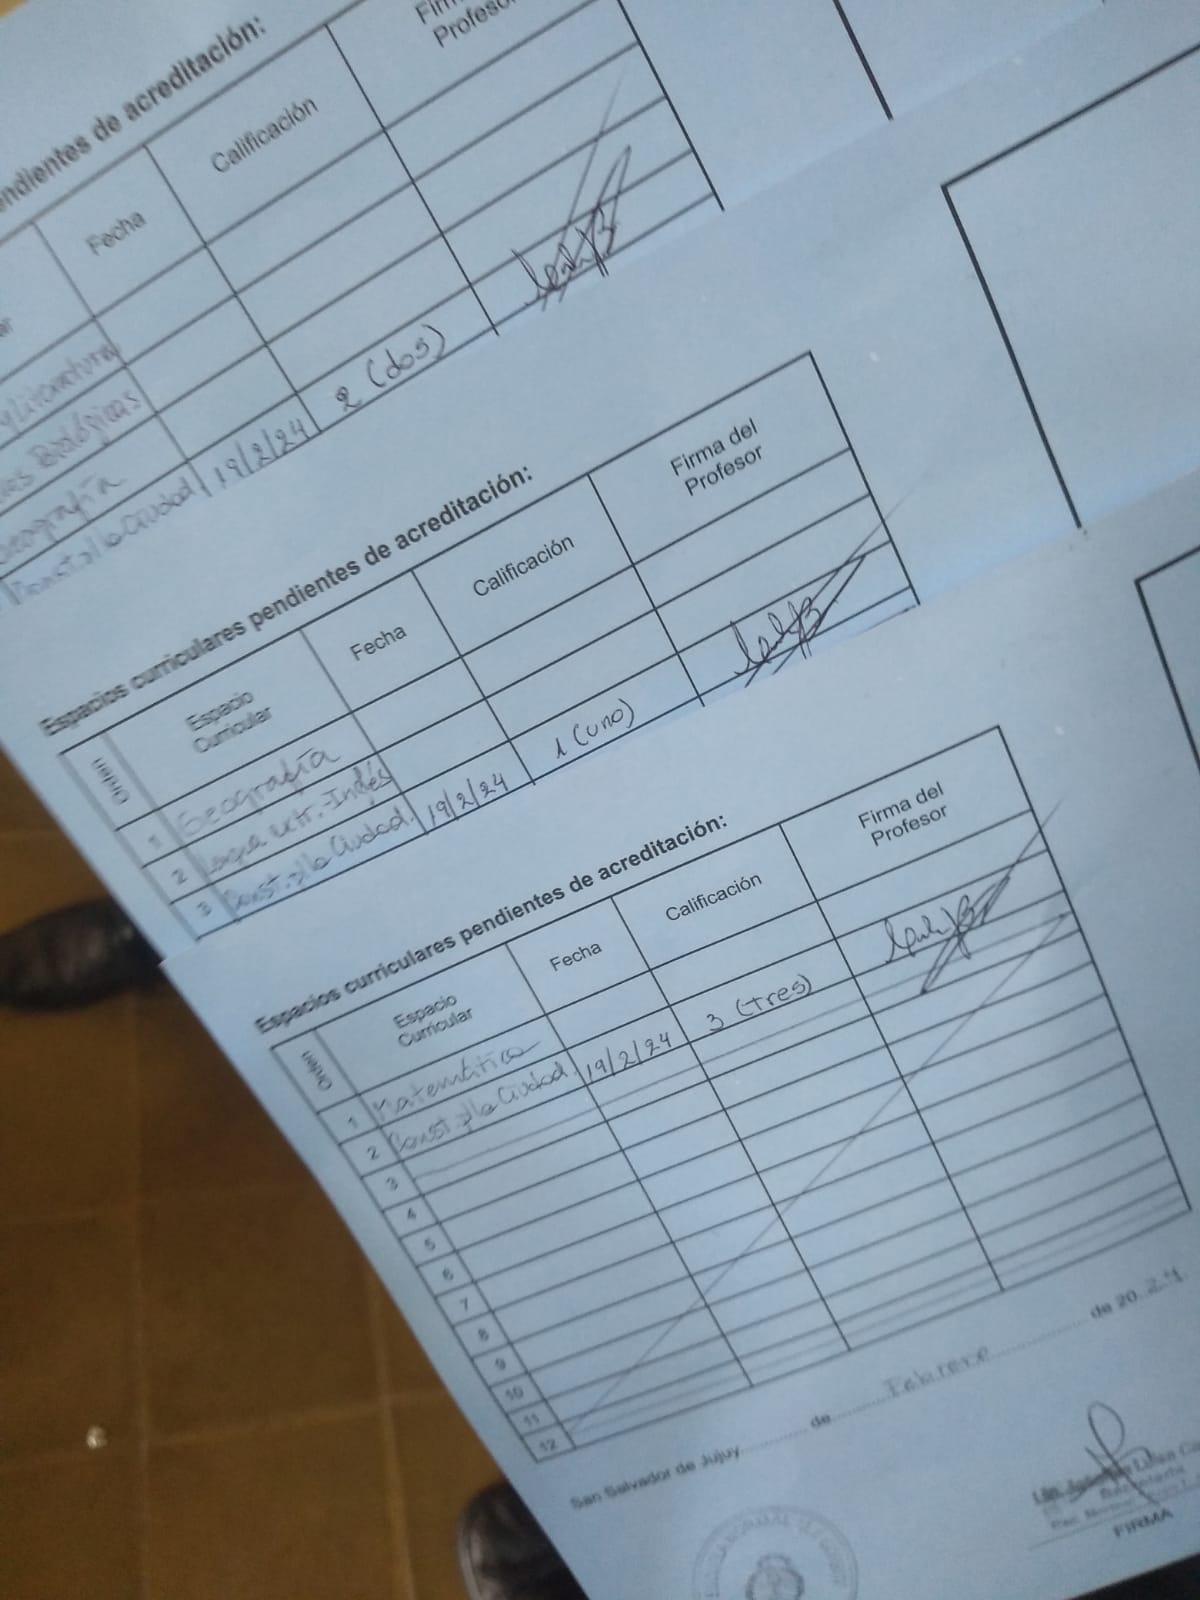 endientes de acreditación:
Fecha
Calificación
Profesor
y Literatura
Biológicas
Geografía
Const. y la Ciudad 19/2/24 2 (dos)
Espacios curriculares pendientes de acreditación:
Orden
Espacio
Curricular
Fecha
Calificación
Firma del
Profesor
1 Geografía
2 Lengua extr.-Inglés
3 Const. y la Ciudad. 19/2/24 1 (uno)
Espacios curriculares pendientes de acreditación:
Orden
Espacio
Curricular
Fecha
Calificación
Firma del
Profesor
1 Matemática
2 Const. y la Ciudad. 19/2/24 3 (tres)
3
4
5
6
7
8
9
10
11
12
San Salvador de Jujuy, de Febrero de 2024.
FIRMA